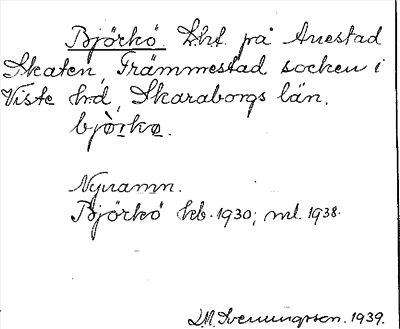 Björkö Lht. på Anestad
Skaten, Främmestad socken i
Viste hrd, Skaraborgs län.
bjö̀rkø.
Nynamn.
Björkö kb. 1930; ml. 1938.
L.M. Svenungsson. 1939.